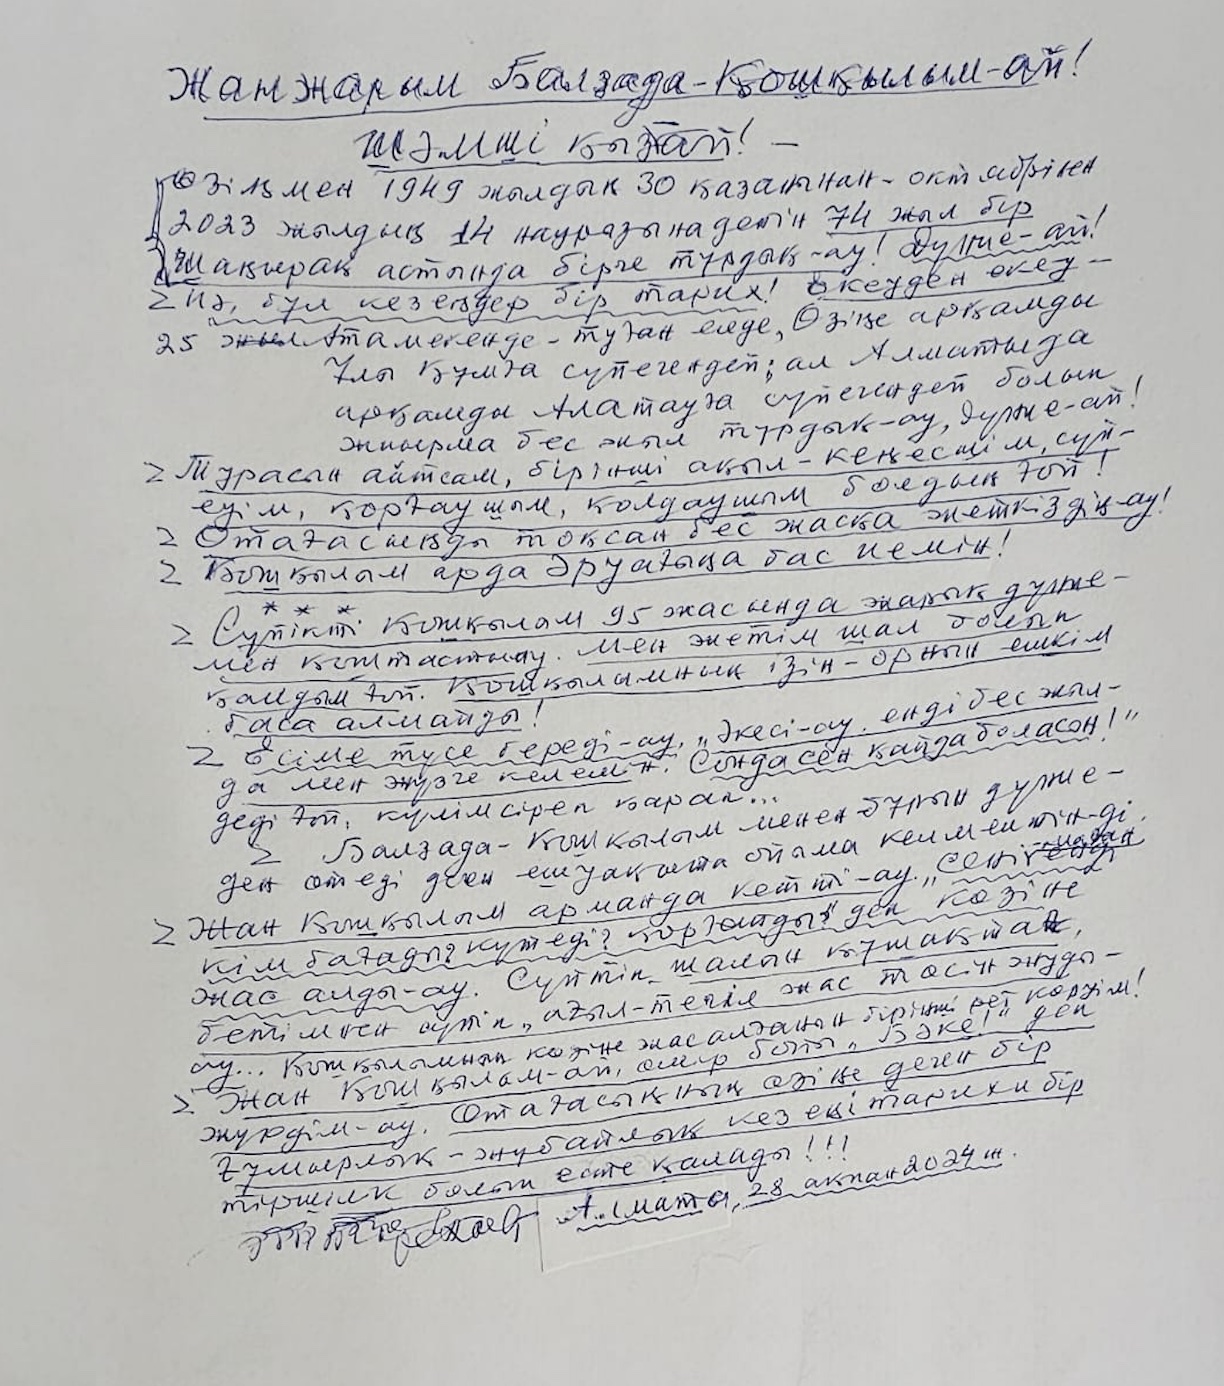 Жан жарым Балзада-Қошқылым-ай!
Шәмші қызтай! —
Өзіңмен 1949 жылдың 30 қазанынан - октябрінен
2023 жылдың 14 наурызына дейін 74 жыл бір
Шаңырақ астында бірге тұрдық-ау! Дүние-ай!
Иә, бұл кезеңдер бір тарих! Екеуден екеу -
25 Атамекенде - туған елде, Өзіңе арқамды
Ұлы Құмға сүйегендей; ал Алматыда
арқамды Алатауға сүйегендей болып
жиырма бес жыл тұрдық-ау, дүние-ай!
Турасын айтсам, бірінші ақыл-кеңесшім, сүй-
еуім, қорғаушым, қолдаушым болдың ғой!
Отағасыңды тоқсан бес жасқа жеткіздің-ау!
Қошқылым арда әруағыңа бас иемін!
* * *
Сүйікті Қошқылым 95 жасында жарық дүние-
мен қоштастыау. Мен жетім шал болып
қалдым ғой. Қошқылымның ізін-орнын ешкім
баса алмайды!
Есіме түсе береді-ау, „Әкесі-ау, енді бес жыл-
да мен жүзге келемін. Сонда сен қайда боласаң!"
деді ғой, күлімсіреп қарап...
Балзада-Қошқылым менен бұрын дүние-
ден өтеді деген ешуақытта ойыма келмейтін-ді.
Жан Қошқылым арманда кетті-ау. „Сені
кім бағады? күтеді? қорғайды?" деп көзіне
жас алды-ау. Сүйтіп шалын құшақтап,
бетімнен сүйіп „ағыл-тегіл жас төсін жуды-
ау... Қошқылымның көзіне жас алғанын бірінші рет көрдім!
Жан Қошқылым-ай, өмір бойы „Бәке!" деп
жүрдім-ау. Отағасыңның өзіңе деген бір
ғұмырлық - жұбайлық кезеңі тарихи бір
тіршілік болып есте қалады!!!
Алматы, 28 ақпан 2024 ж.